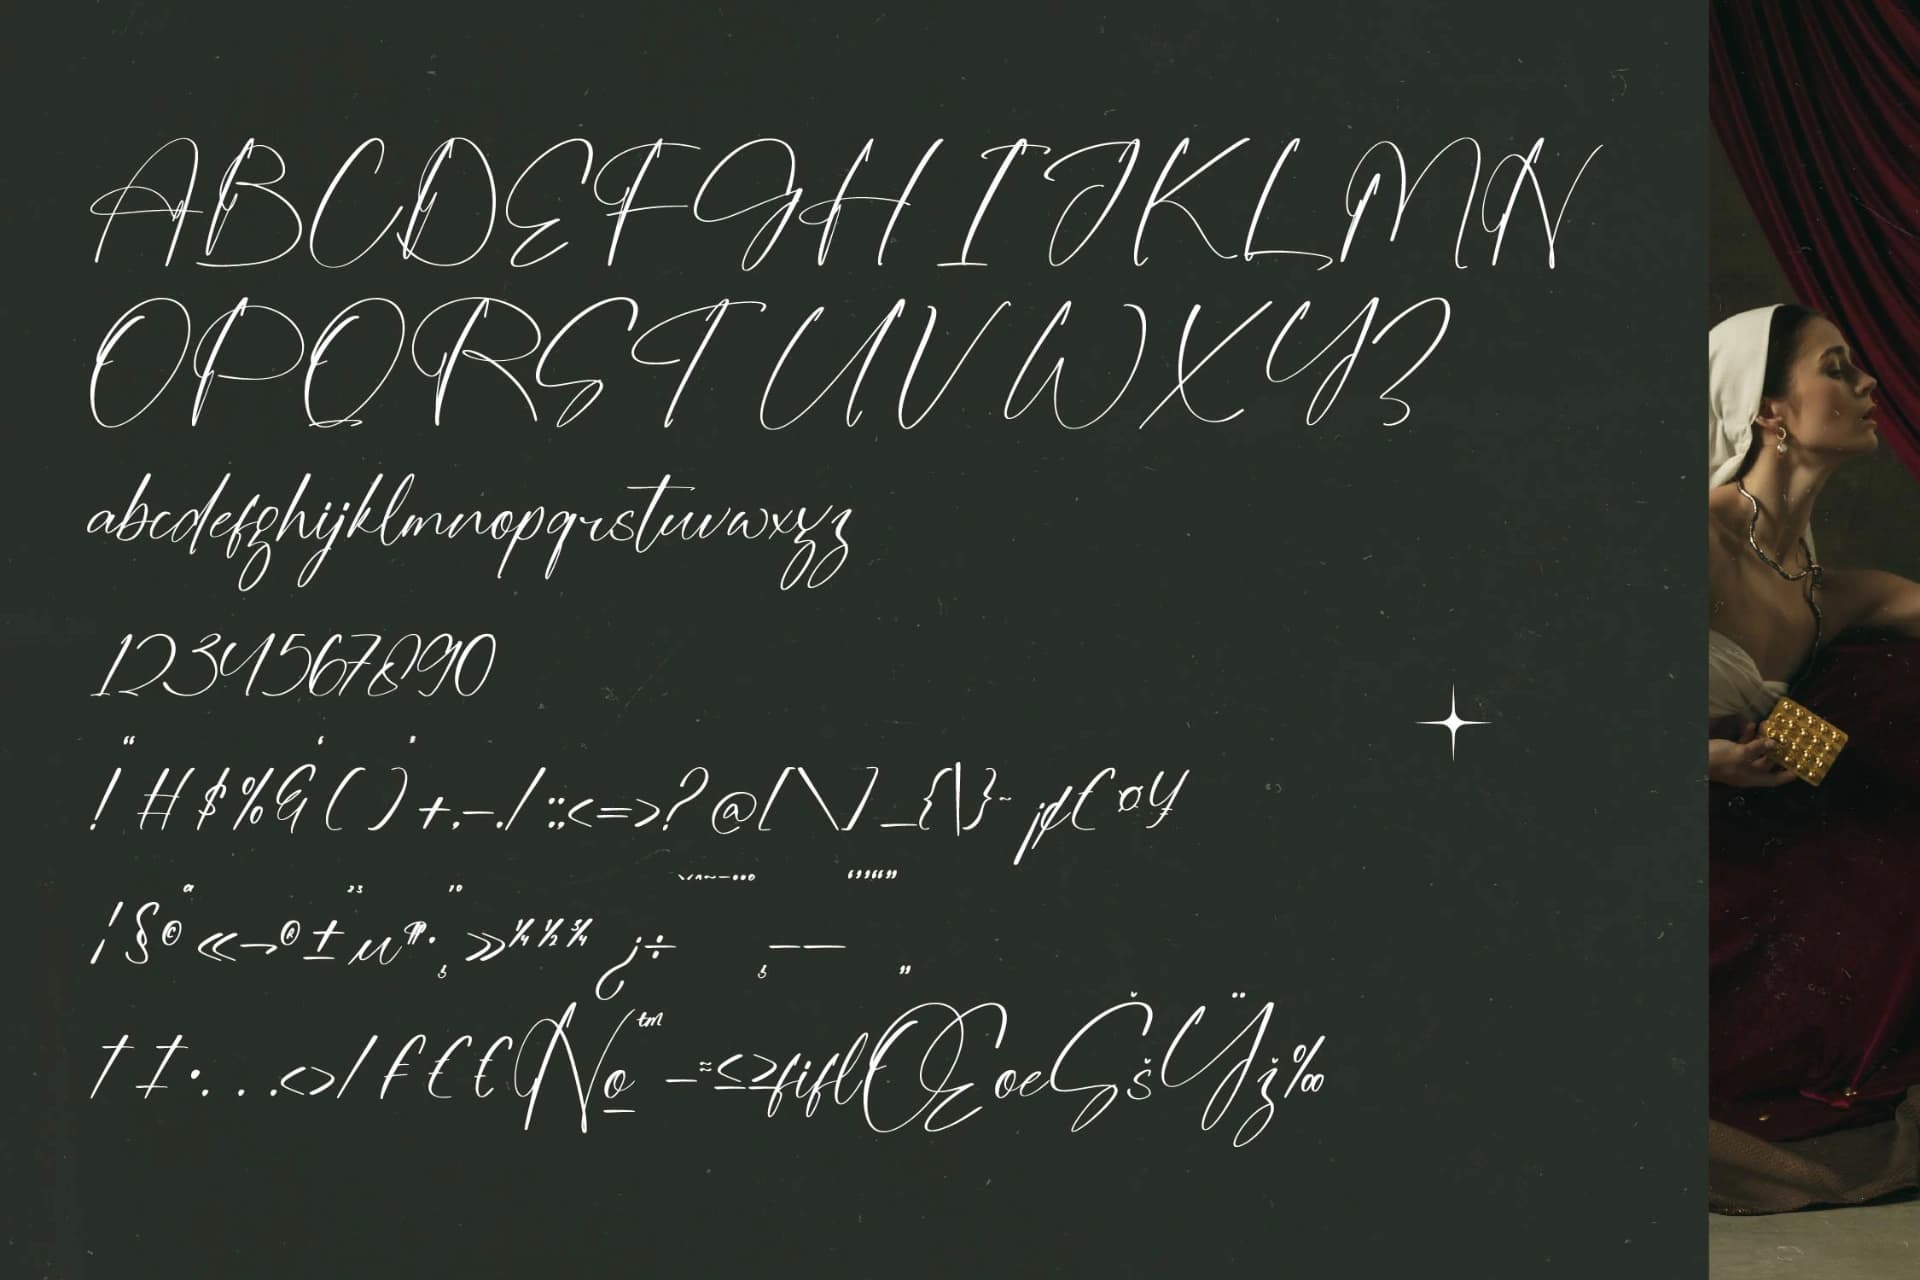 ABCDEFGHIJKLMN
OPQRSTUVWXYZ
abcdefghijklmnopqrstuvwxyz
1234567890
!"#$%&'()*+,-./:;<=>?@[\]_{|}~¡¢£¤¥
¦§©ª«¬®±²³µ¶·¸¹º»¼½¾¿÷
†‡•...‹›/₣££№™−≈≤≥fiflŒœŠšŸž‰